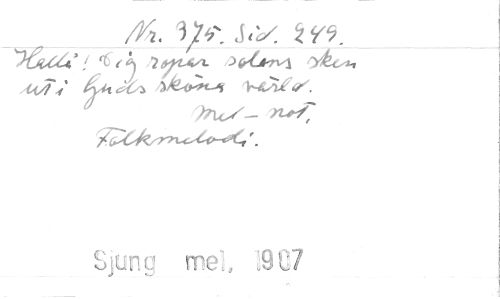 Nr. 375. Sid. 249.
Hallå! Dig ropar solens sken
ut i Guds sköna värld.
Mel-not.
Folkmelodi.
Sjung mel, 1907